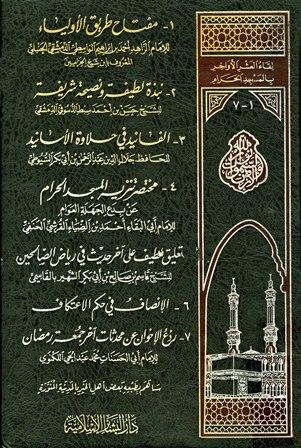 لقاء العشر الأواخر
بالمسجد الحرام
١-٧
١- مفتاح طريق الأولياء
للإمام الزاهد أحمد بن إبراهيم الواسطي الدمشقي الحنبلي
المعروف بابن شيخ الحزاميين
٢- نبذة لطيفة ونصيحة شريفة
للشيخ حسن بن أحمد سبط الدسوقي الدمشقي
٣- الفانيد في حلاوة الأسانيد
للحافظ جلال الدين عبد الرحمن بن أبي بكر السيوطي
٤- مختصر تنزيه المسجد الحرام
عن بدع الجهلة العوام
للإمام أبي البقاء أحمد بن الضياء القرشي الحنفي
تعليق لطيف على آخر حديث في رياض الصالحين
للشيخ قاسم بن صالح بن أبي بكر الشهير بالقاسمي
٦- الإنصاف في حكم الاعتكاف
٧- ردع الإخوان عن محدثات آخر جمعة رمضان
للإمام أبي الحسنات محمد عبد الحي اللكنوي
ساهم بطبعه بعض أهل الخير بالمدينة المنورة
دار البشائر الإسلامية